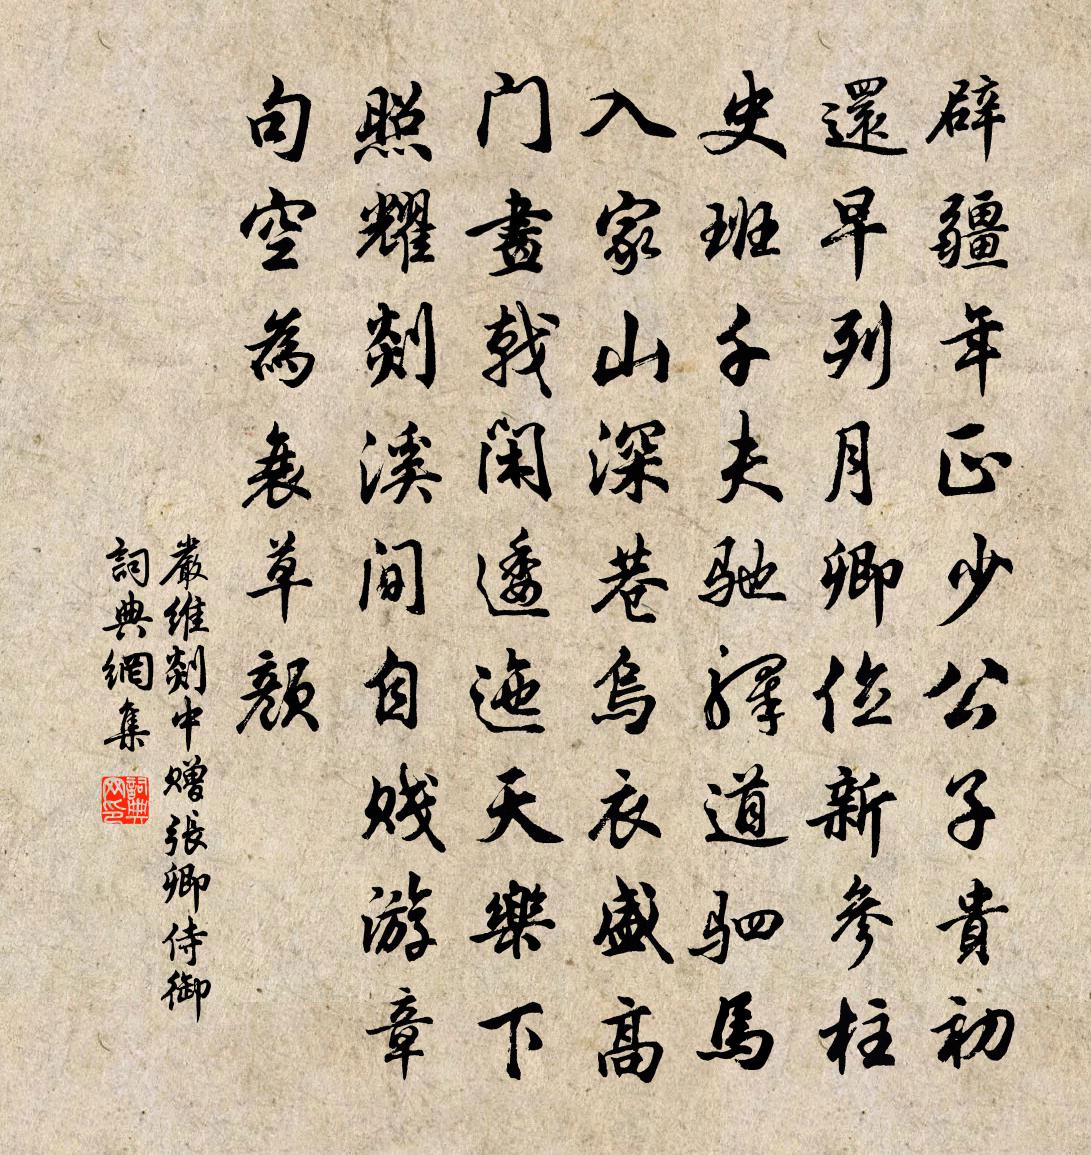 辟疆年正少公子貴初
還早列月卿位新參柱
史班千夫馳驛道駟馬
入家山深巷烏衣盛高
門畫戟閑逶迤天樂下
照耀剡溪間自賤游章
句空為衰草顏
嚴維剡中贈張卿侍御
詞典網集
詞典网印